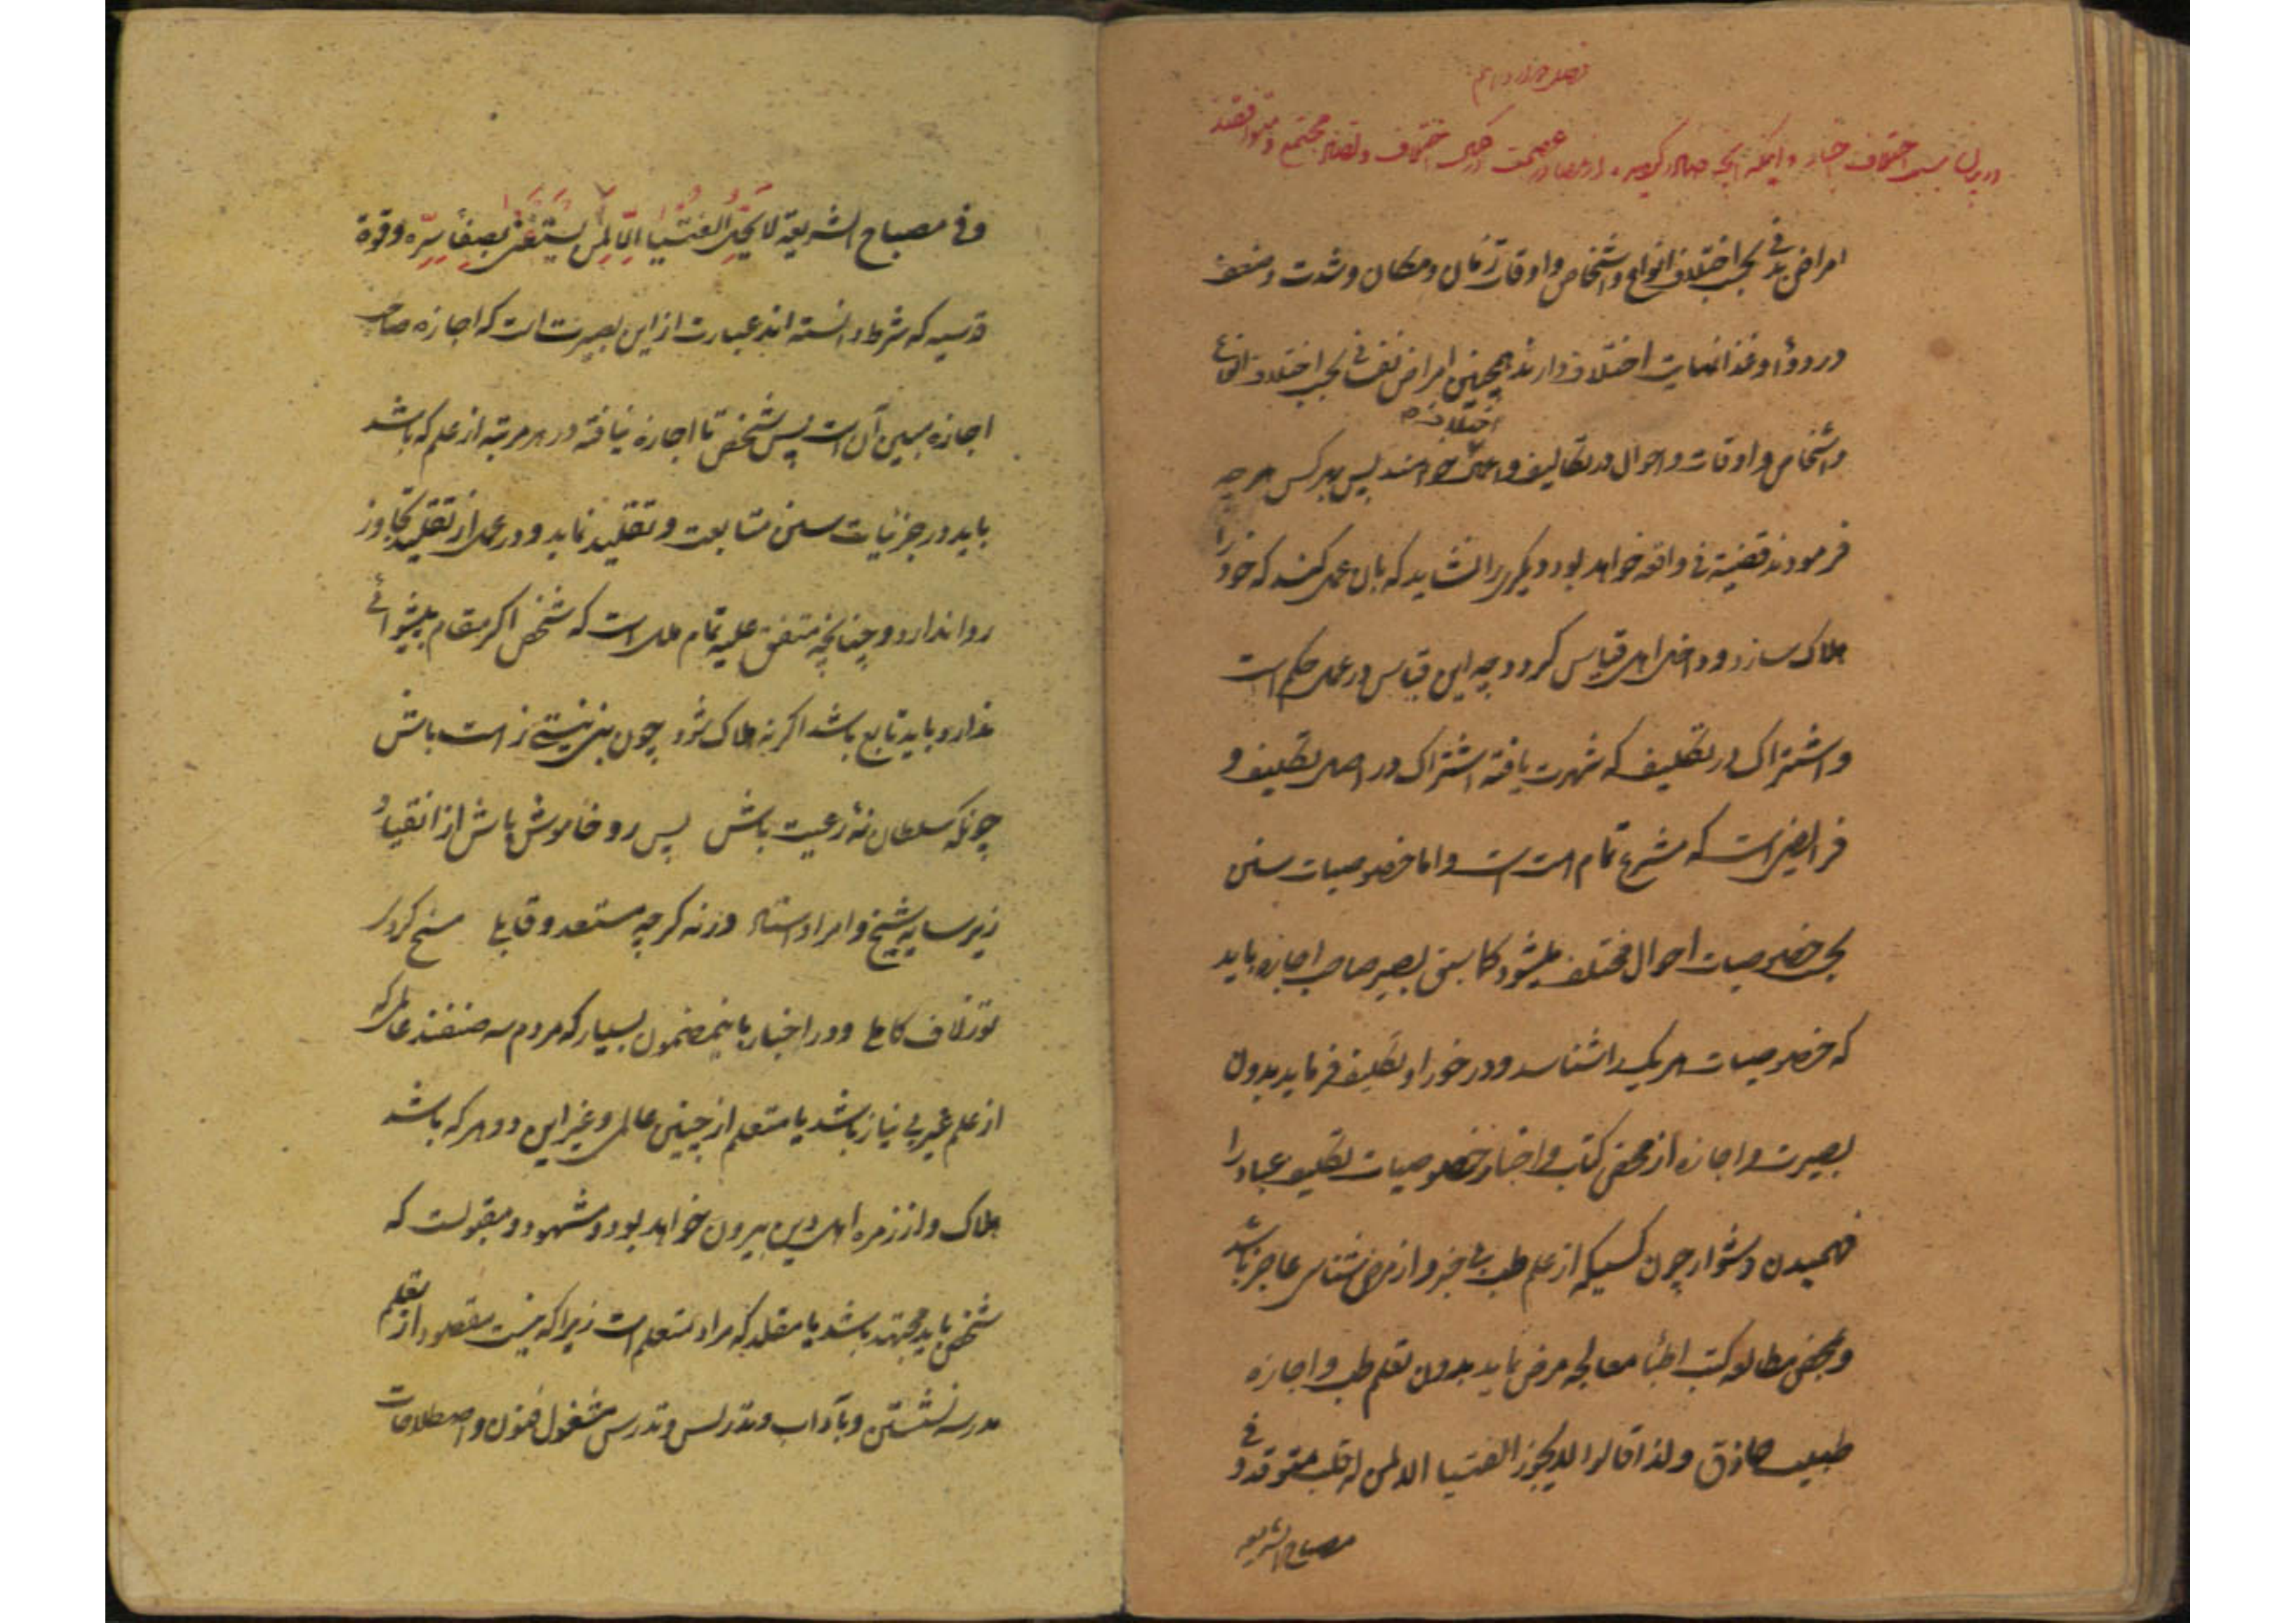 فصل چهاردهم
در بیان سبب اختلاف اخبار و اینکه آنچه صادر گردیده از مصادر عصمت در عین اختلاف و تضاد مجتمع و متوافقند
امراض بدنی بحسب اختلاف انواع و اشخاص و اوقات زمان و مکان و شدت و ضعف
در دوا و غذا نهایت اختلاف دارند همچنین امراض نفسانی بحسب اختلاف انواع
اختلاف
و اشخاص و اوقات و احوال در تکالیف و اعمال خواهند پس بهر کس هر چه
فرمودند قضیة فی واقعه خواهد بود و دیگریرا نشاید که بان عمل کند که خود را
هلاک سازد و داخل اهل قیاس گردد چه این قیاس در عمل حکم است
و اشتراک در تکلیف که شهرت یافته اشتراک در اصل تکلیف و
فرایض است که مشرع تمام امت است و اما خصوصیات سنن
بحسب خصوصیات احوال مختلف میشود کما سبق بصیر صاحب اجازه باید
که خصوصیات هر یک را شناسد و در خور او تکلیف فرماید بدون
بصیرت و اجازه از محض کتاب و اخبار خصوصیات تکلیف عباد را
فهمیدن دشوار چون کسیکه از علم طب بی خبر و از مرض شناسی عاجز باشد
و بمحض مطالعه کتب اطبا معالجه مرض نماید بدون تعلم طب و اجازه
طبیب حاذق و لذا قالوا لا یجوز الفتیا الا لمن له قلب متوقد و فی
مصباح الشریعه
و فی مصباح الشریعة لا یحل الفتیا الا لمن یستفتی بصفاء سره و قوة
قدسیه که شرط دانسته اند عبارت از این بصیرت است که اجازه صاحب
اجازه مبین آن است پس شخص تا اجازه نیافته در هر مرتبه از علم که باشد
باید در جزئیات سنن متابعت و تقلید نماید و در عمل از تقلید تجاوز
روا ندارد و چنانچه متفق علیه تمام ملل است که شخص اگر مقام پیشوائی
ندارد باید تابع باشد اگر نه هلاک شود چون نبی نیستی ز امت باش
چونکه سلطان نه رعیت باش پس رو خاموش باش از انقیاد
زیر سایه شیخ و امر اوستاد ورنه گرچه مستعد و قابلی مسخ گردی
تو ز لاف کاملی و در اخبار باینمضمون بسیار که مردم سه صنفند عالمی که
از علم غیر بی نیاز باشد یا متعلم از چنین عالمی و غیر این دو هر که باشد
هلاک و از زمره اهل دین بیرون خواهد بود و مشهود و مقبولست که
شخص باید مجتهد باشد یا مقلد که مراد متعلم است زیرا که نیست مقصود از تعلم
مدرسه نشستن و بآداب و تدریس و تدرس مشغول فنون و اصطلاحات